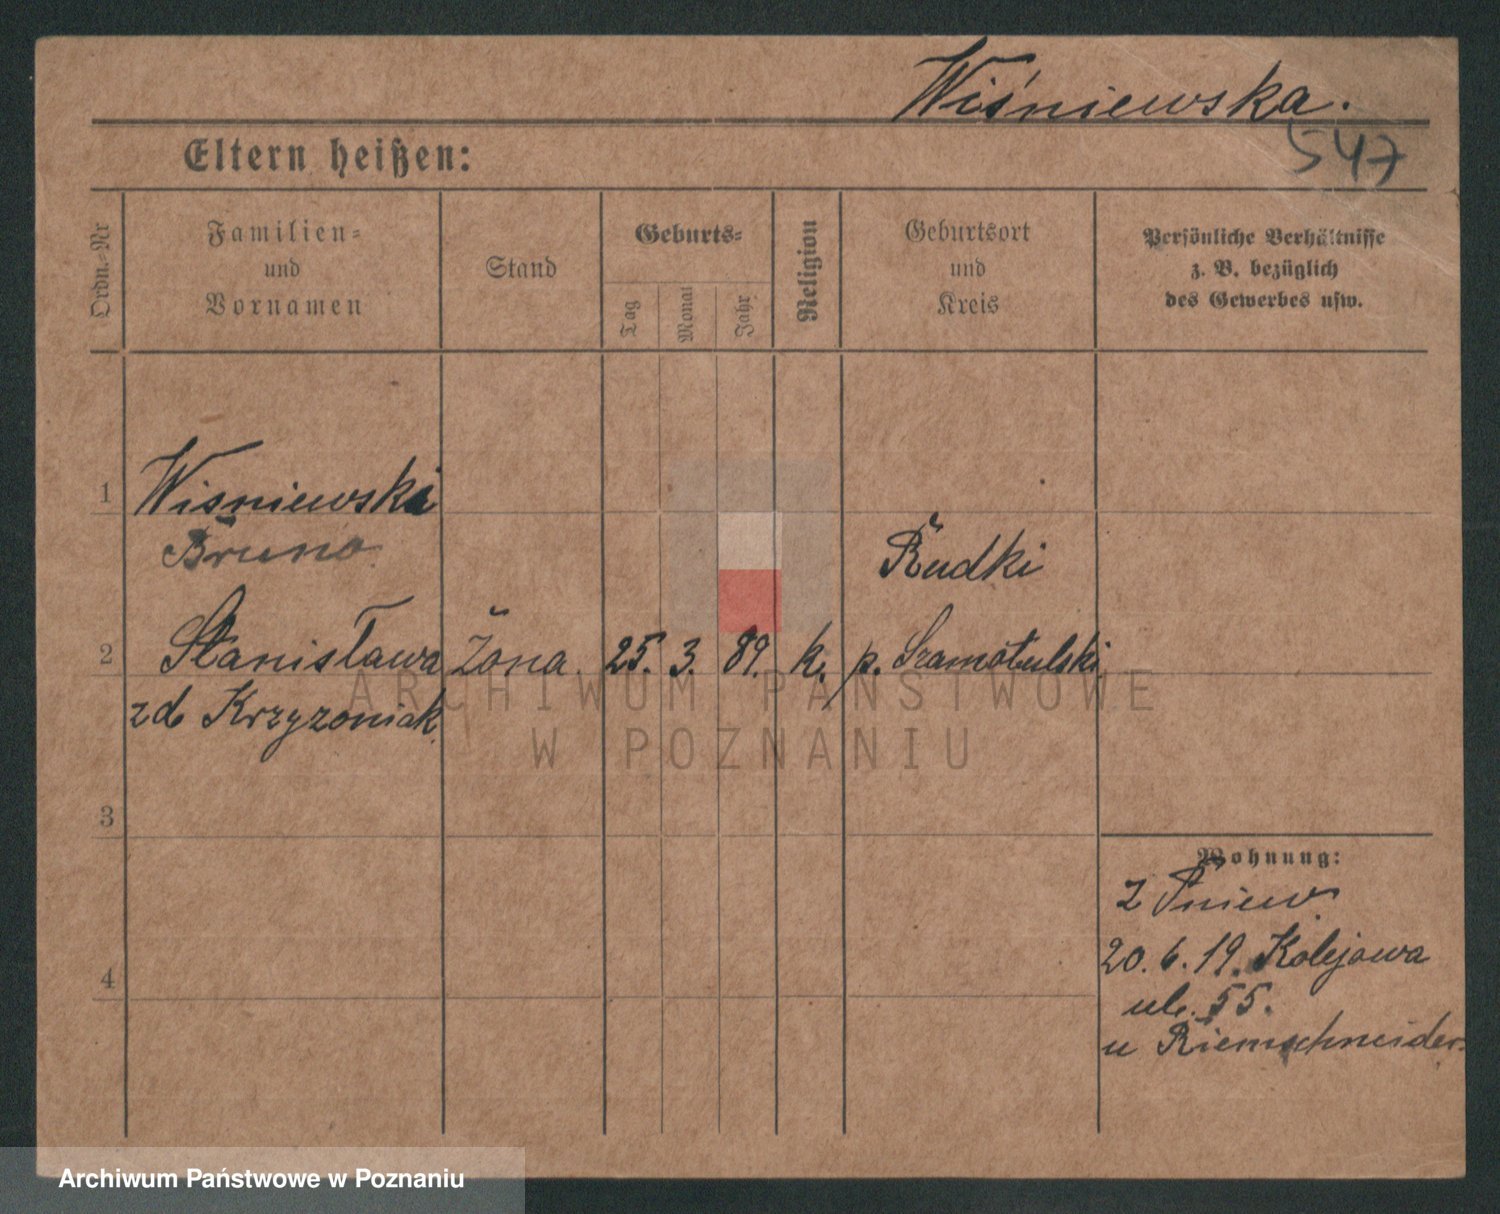 Wiśniewska.
547
Eltern heißen:
Ordn.-Nr
Familien-
und
Vornamen
Stand
Geburts-
Tag
Monat
Jahr
Religion
Geburtsort
und
Kreis
Persönliche Verhältnisse
z. B. bezüglich
des Gewerbes usw.
1
Wisniewski
Bruno
Rudki
2
Stanisława
żona
25. 3. 89. k.
p. Szamotulski
zd Krzyzoniak
ARCHIWUM PAŃSTWOWE
W POZNANIU
3
4
Wohnung:
z Pniew
20. 6. 19. Kolejowa
ul. 55.
u Riemschneider
Archiwum Państwowe w Poznaniu